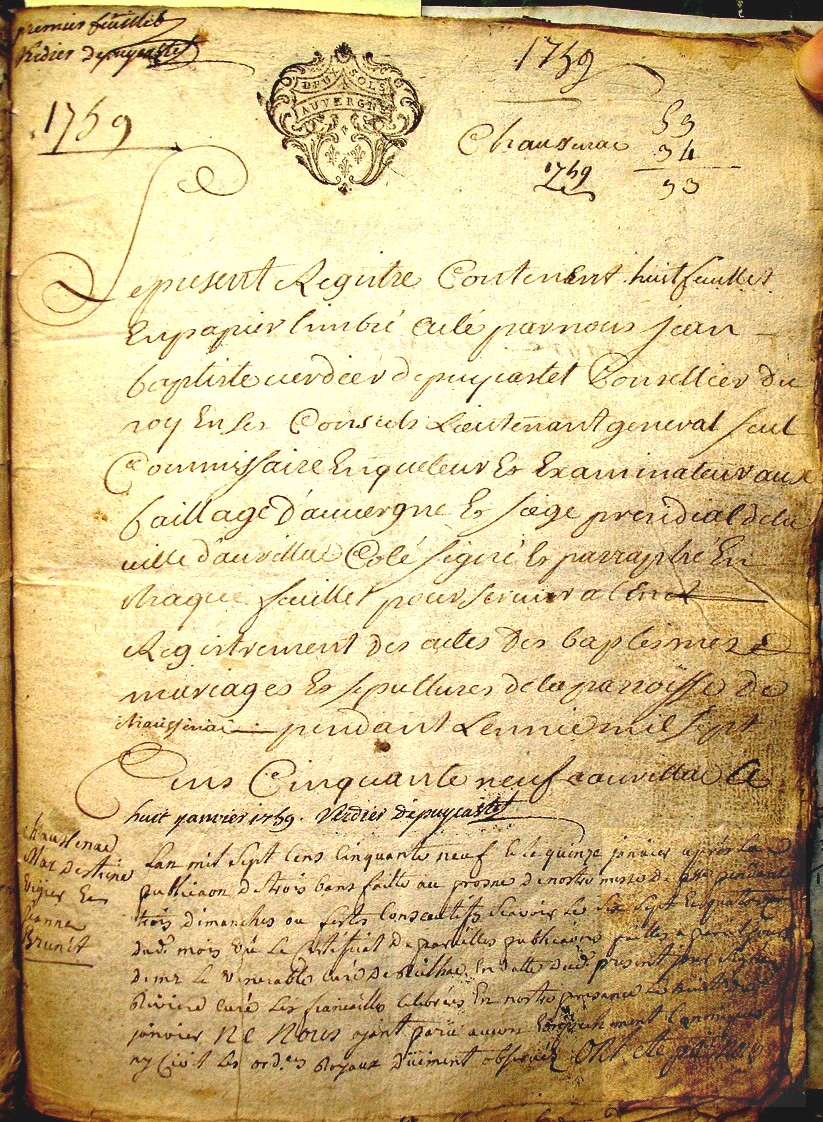 premier feuillet
Verdier depuycastel
1759
DEUX SOLS
AUVERGNE
1759
Chaussenac
1759
59
34
93
Le present Registre Contenent huit feuillet
En papier timbré Coté par nous jean
baptiste verdier depuycastel Conseillier du
roy En ses Conseils Lieutenant general seul
Commissaire Enqueteur Et Examinateur aux
baillage d'auvergne Et siege presidial dela
ville d'aurillac Coté signé Et parraphé En
chaque feuillet pour servir a l'enre
Registrement des actes des baptesmes
mariages Et sepultures de la parroisse de
chaussenac pendant L'année mil sept
Cens Cinquante neuf a aurillac Le
huit janvier 1759. Verdier depuycastel
chaussenac
Mar. destiene
Vigier Et
jeanne
Brunet
L'an mil sept Cens Cinquante neuf Et le quinze janvier après la
publicaon de trois bans faitte au prosne de nostre messe de pss. pendant
trois dimanches ou festes Consecutifs scavoir Le six sept Et quatorze
dud. mois vû Le Certificat de pareilles publicaons faittes
de mr Le Venerable Curé de En datte dud. present jour signé
Riviere Curé Les fiancailles Celebrées En nostre presance Le huit dud.
janvier NE NOUS ayant paru aucun Empechement Canonique
ny Civil Les ord.es Royaux dûement observées ONT ete